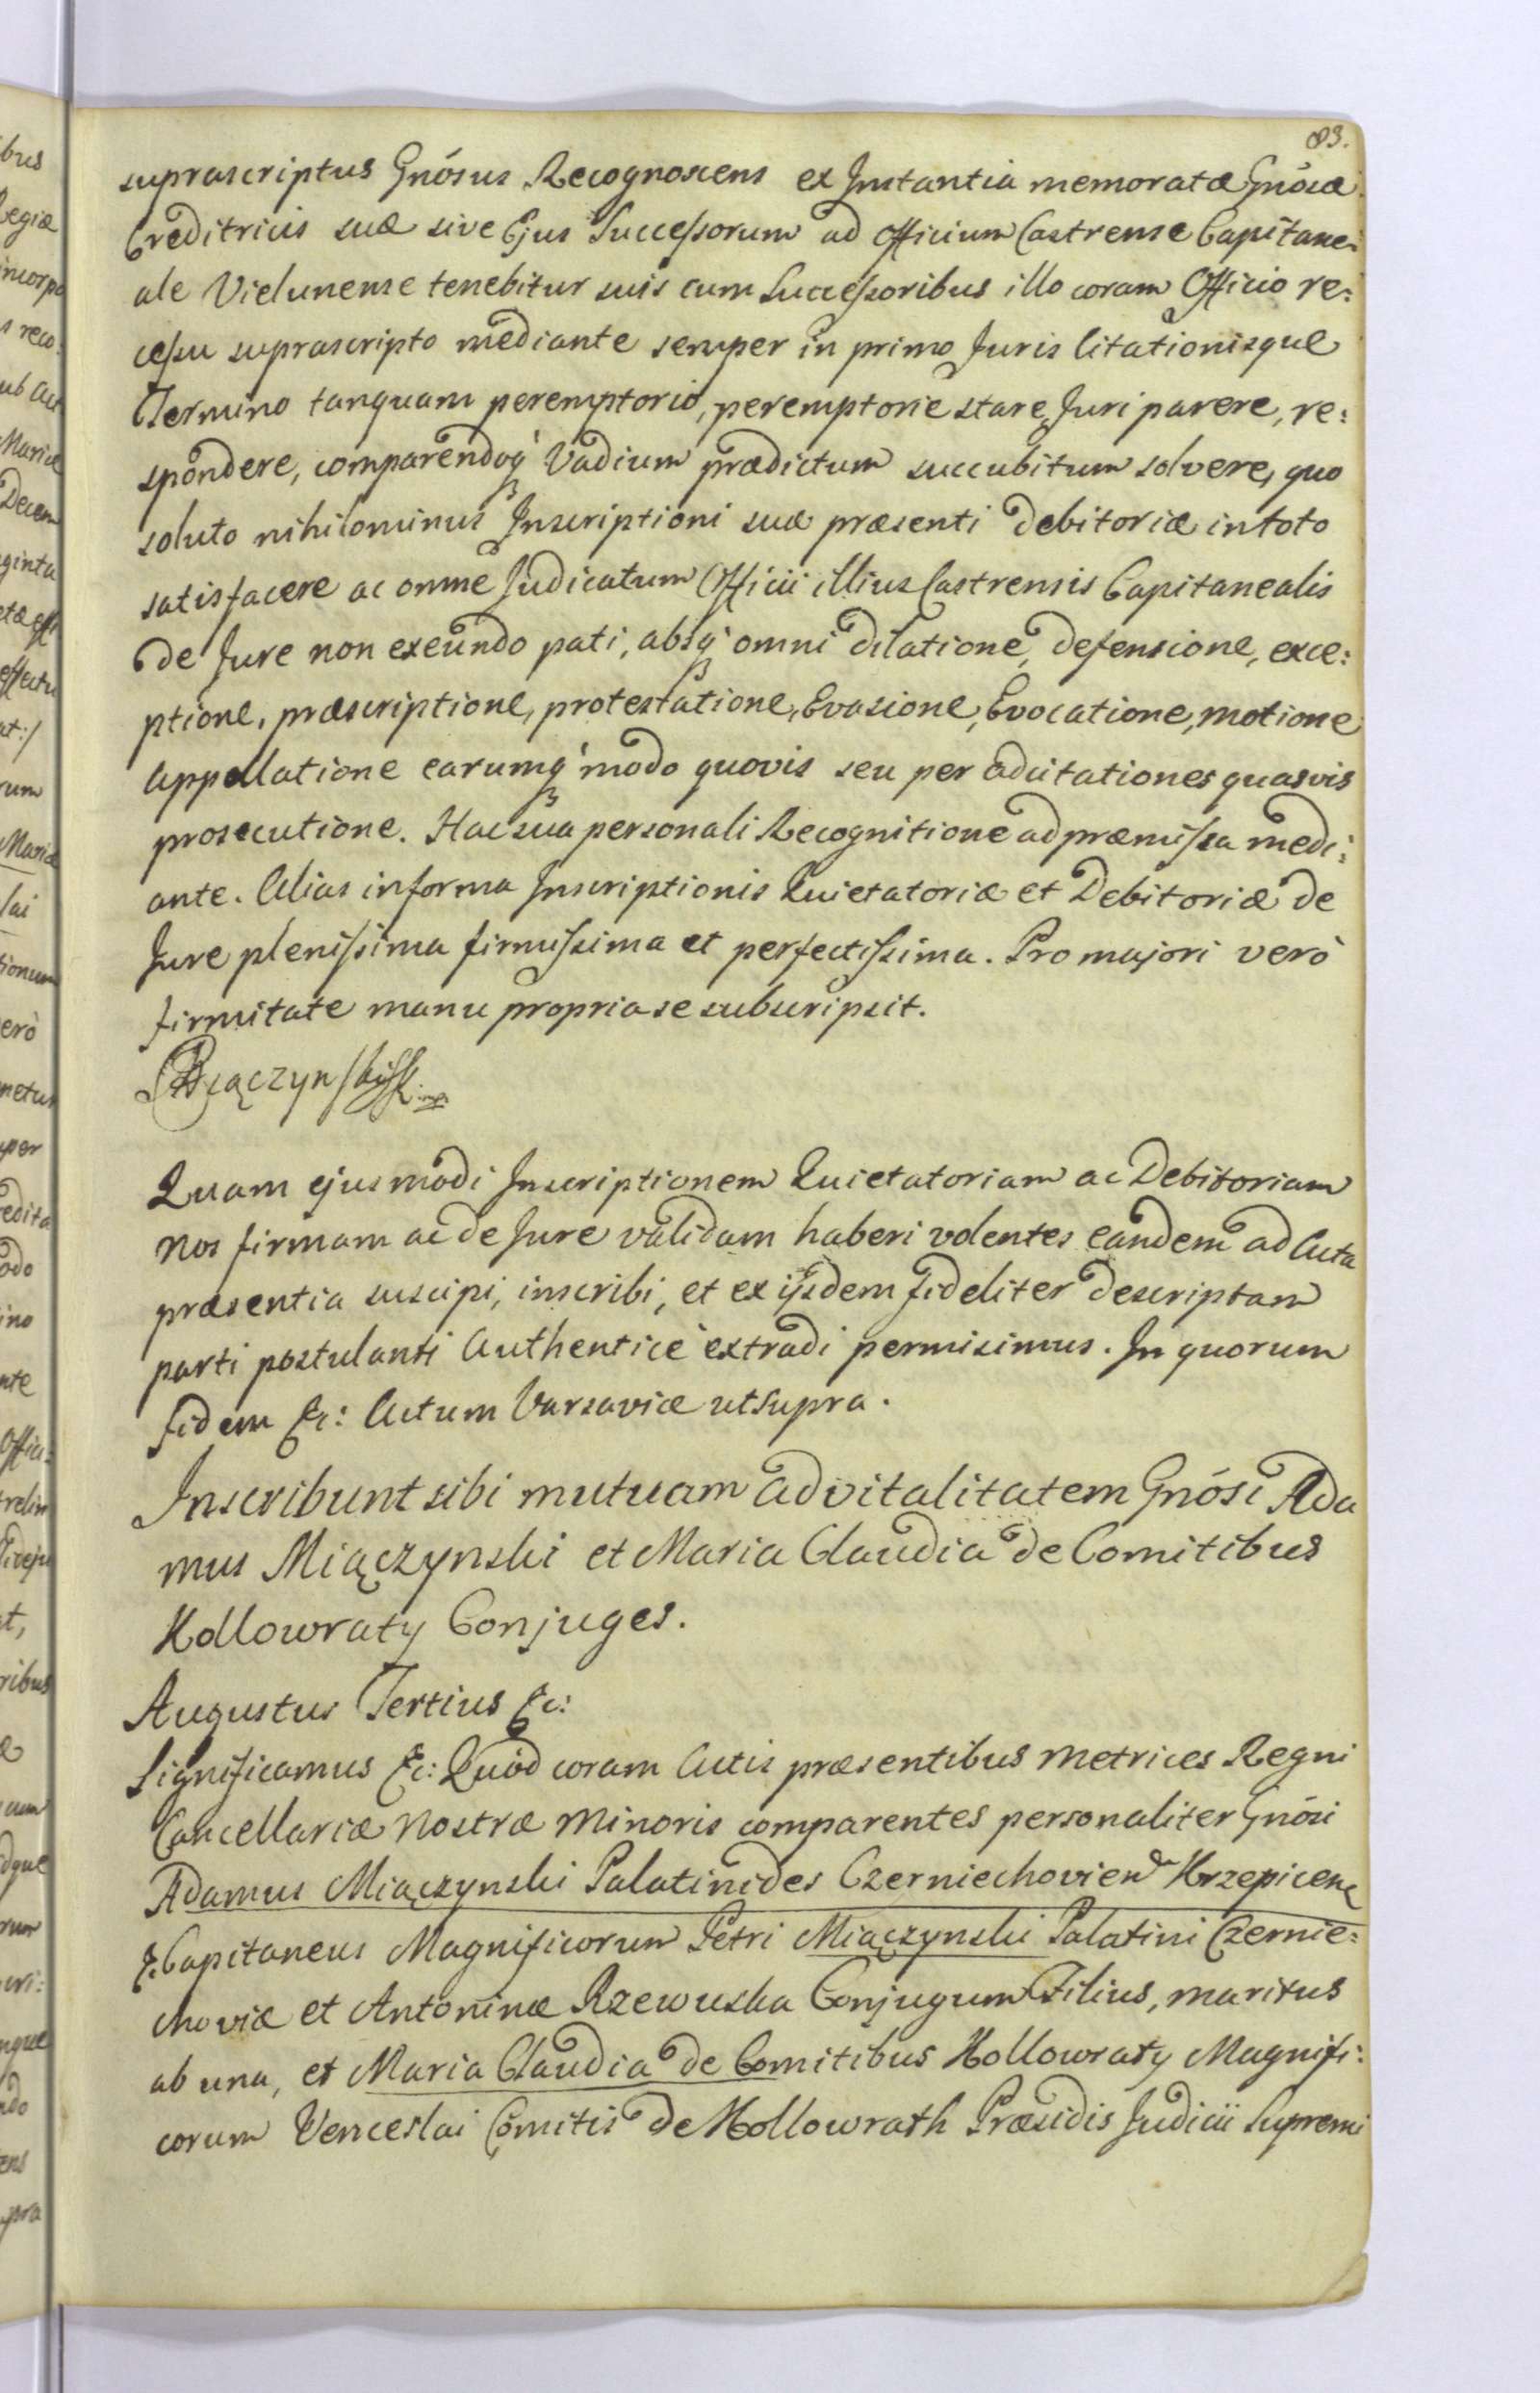 83.
suprascriptus Gnósus Recognoscens ex Instantia memoratæ Gnósæ
Creditricis suæ sive Ejus Successorum ad Officium Castrense Capitane:
ale Vielunense tenebitur suis cum Successoribus illo coram Officio re:
cessu suprascripto mediante semper in primo Juris Citationisque
Termino tanquam peremptorio, peremptorie stare, Juri parere, re:
spondere, comparendoq́ Vadium prædictum succubitum solvere, quo
soluto nihilominus Inscriptioni suæ præsenti debitoriæ in toto
satisfacere ac omne Judicatum Officii illius Castrensis Capitanealis
de Jure non exeundo pati, absq́ omni dilatione, defensione, exce:
ptione, præscriptione, protestatione, Evasione, Evocatione, motione
appellatione earumq́ modo quovis seu per adcitationes quasvis
prosecutione. Hac sua personali Recognitione ad præmissa medi:
ante. Alias in forma Inscriptionis Quietatoriæ et Debitoriæ de
Jure plenissima firmissima et perfectissima. Pro majori verò
firmitate manu propria se subscripsit.
Quam ejusmodi Inscriptionem Quietatoriam ac Debitoriam
Nos firmam ac de Jure validam haberi volentes eandem ad Acta
præsentia suscipi, inscribi, et ex ijsdem fideliter descriptam
parti postulanti Authenticè extradi permisimus. In quorum
fidem &c: Actum Varsaviæ ut supra.
Inscribunt sibi mutuam advitalitatem Gnósi Ada
mus Miączynski et Maria Claudia de Comitibus
Kollowraty Conjuges.
Augustus Tertius &c:
Significamus &c: Quod coram Actis præsentibus Metrices Regni
Cancellariæ Nostræ Minoris comparentes personaliter Gnósi
Adamus Miączynski Palatinides Czerniechovien Krzepicen
&. Capitaneus Magnificorum Petri Miączynski Palatini Czernie:
choviæ et Antoninæ Rzewuska Conjugum Filius, maritus
ab una, et Maria Claudia de Comitibus Kollowraty Magnifi:
corum Venceslai Comitis de Kollowrath Præsidis Judicii Supremi